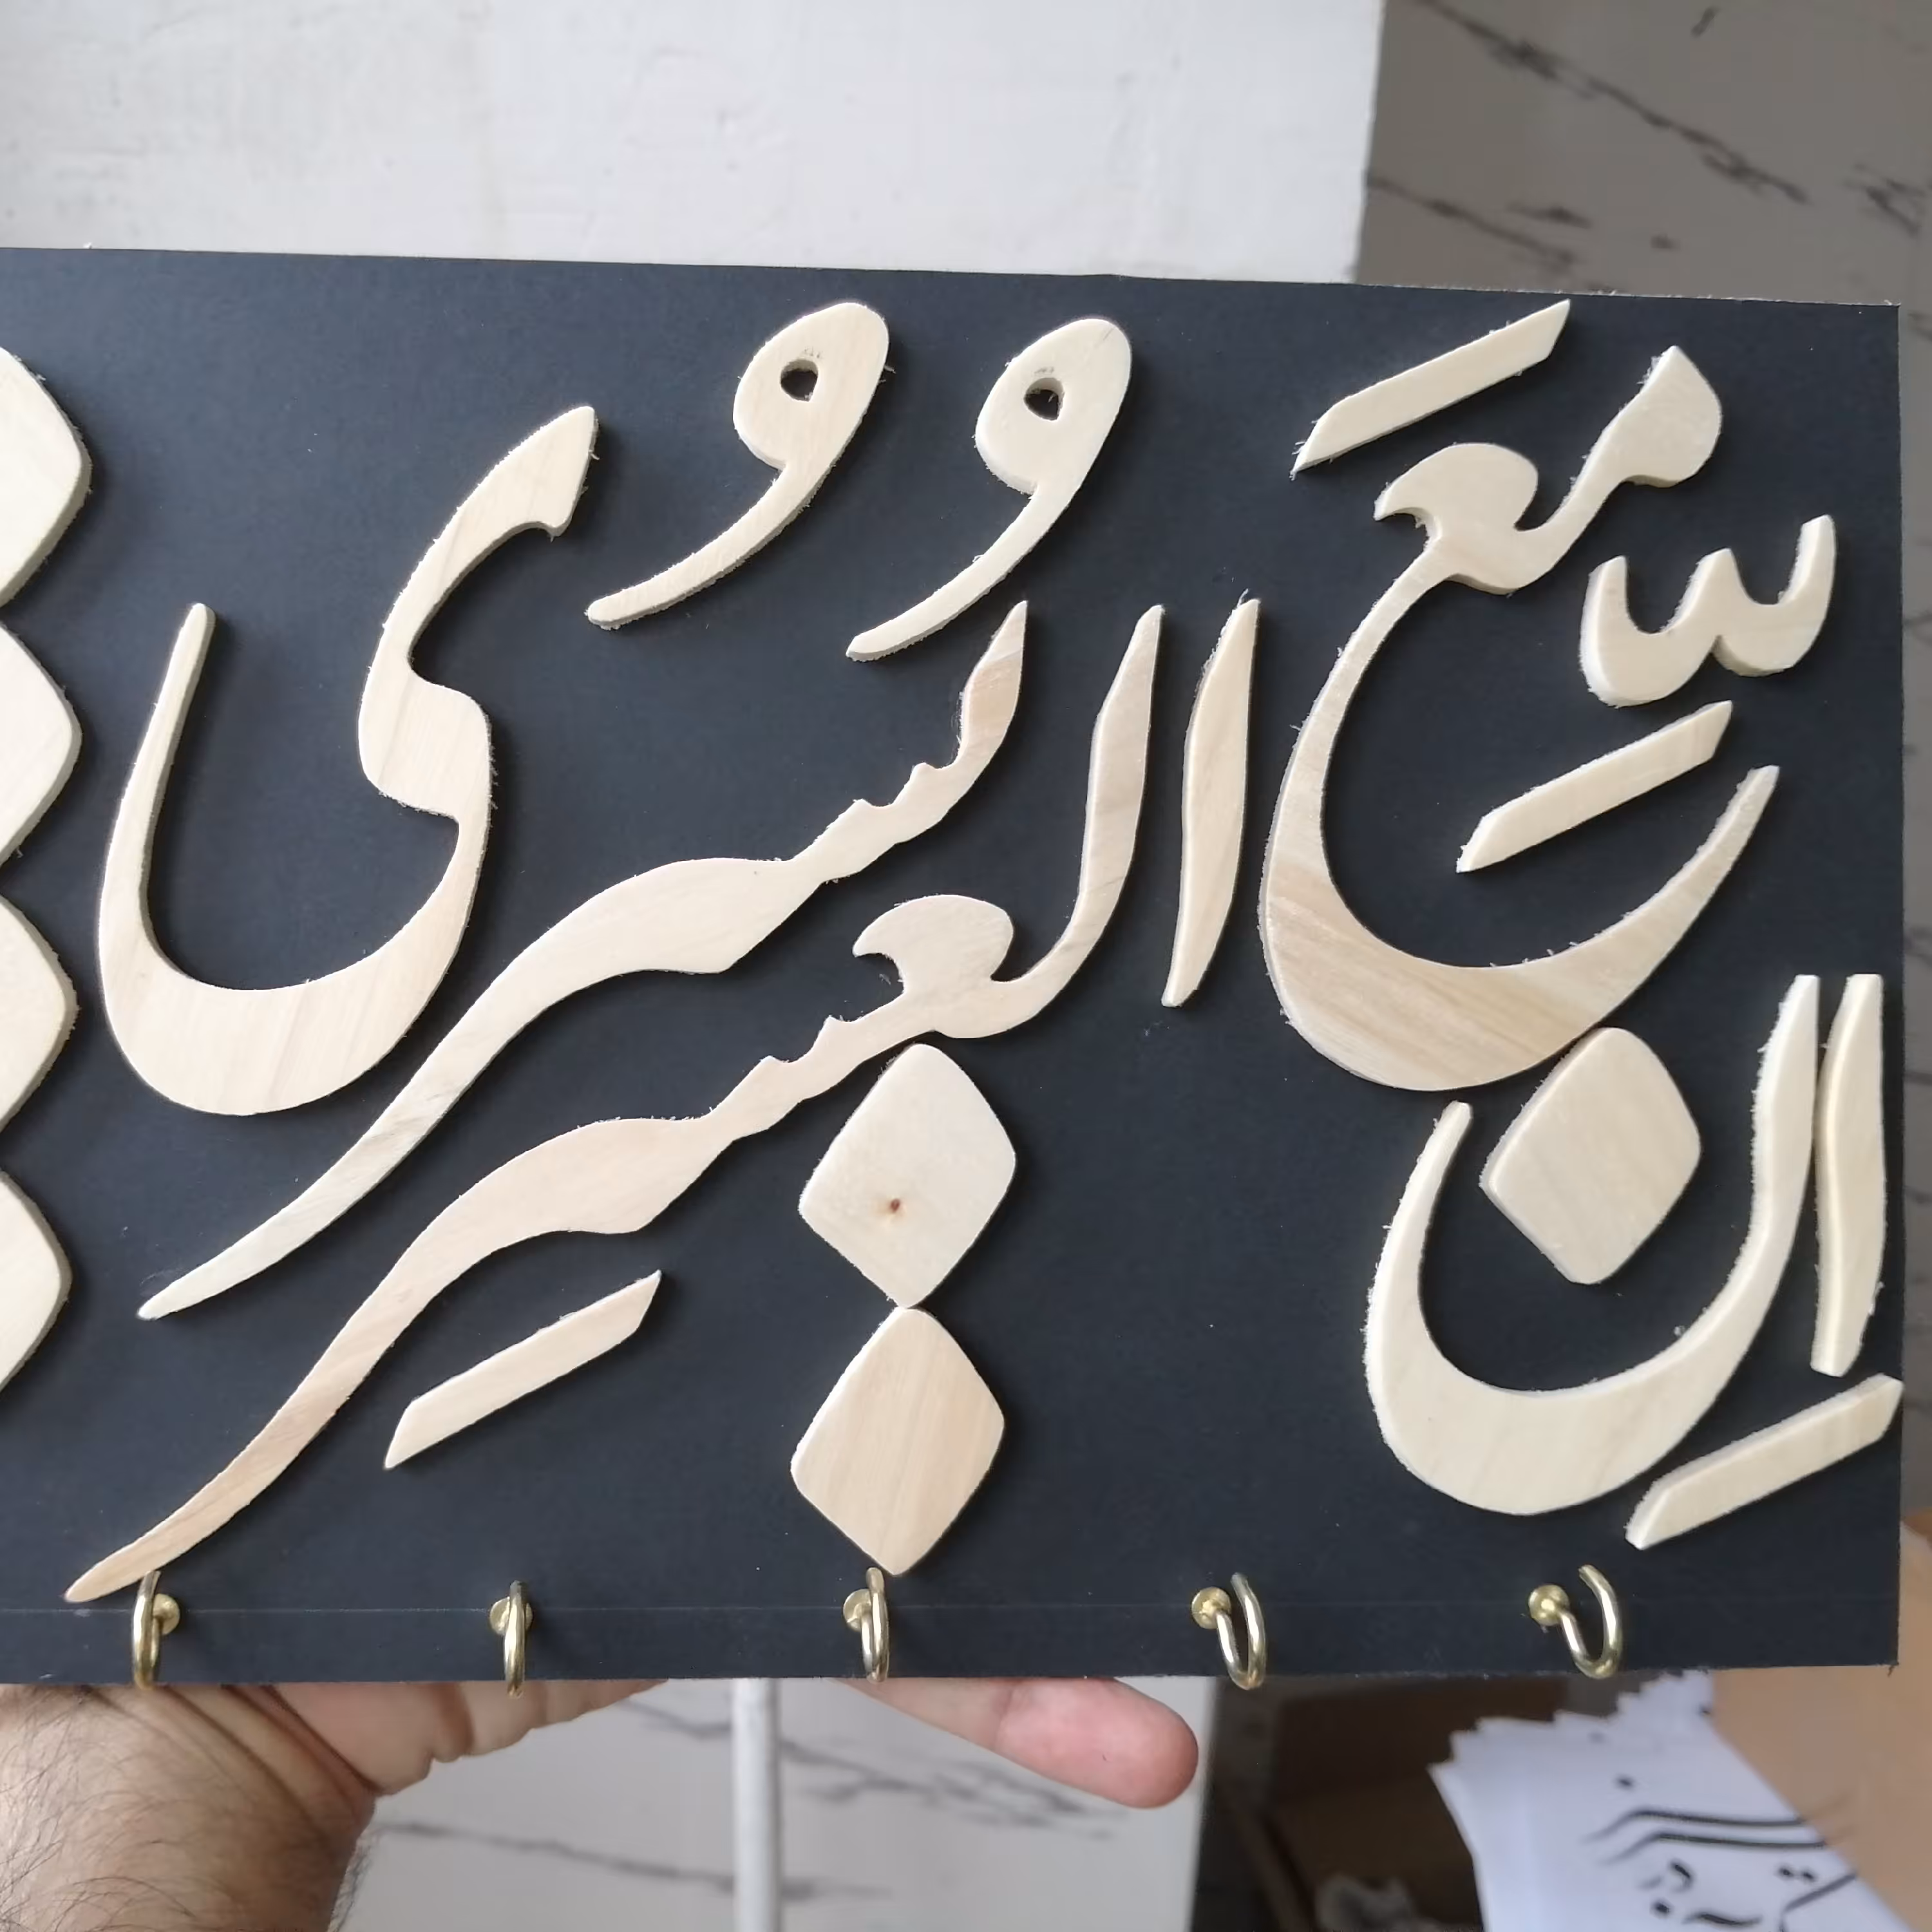 اِنَّ مَعَ العُسرِ یُسری